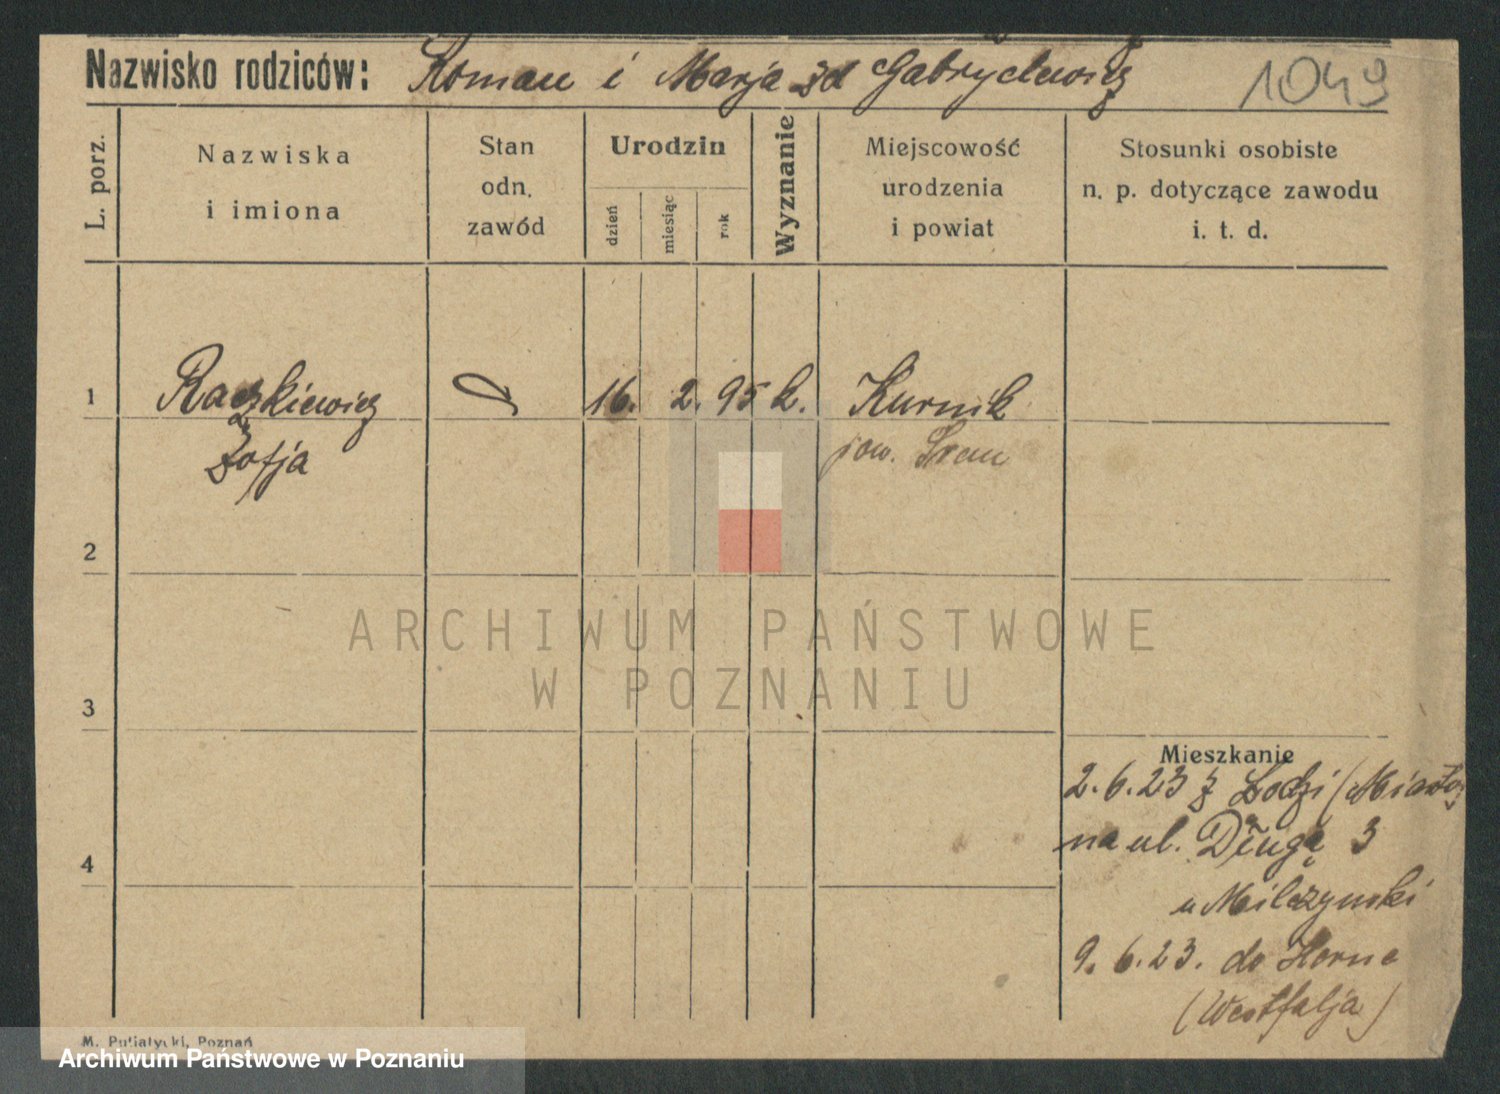 Nazwisko rodziców: Roman i Marja zd Gabryelewicz
1049
L. porz.
Nazwiska
i imiona
Stan
odn.
zawód
Urodzin
dzień
miesiąc
rok
Wyznanie
Miejscowość
urodzenia
i powiat
Stosunki osobiste
n. p. dotyczące zawodu
i. t. d.
1 Raczkiewicz 16. 2. 95 k. Kurnik
Zofja pow. Śrem
2
3
4
Mieszkanie
2.6.23 z Łodzi (Miasto)
na ul. Długą 3
u Milczynski
9.6.23. do Horne
(Westfalja)
M. Putiatycki, Poznań
ARCHIWUM PAŃSTWOWE
W POZNANIU
Archiwum Państwowe w Poznaniu